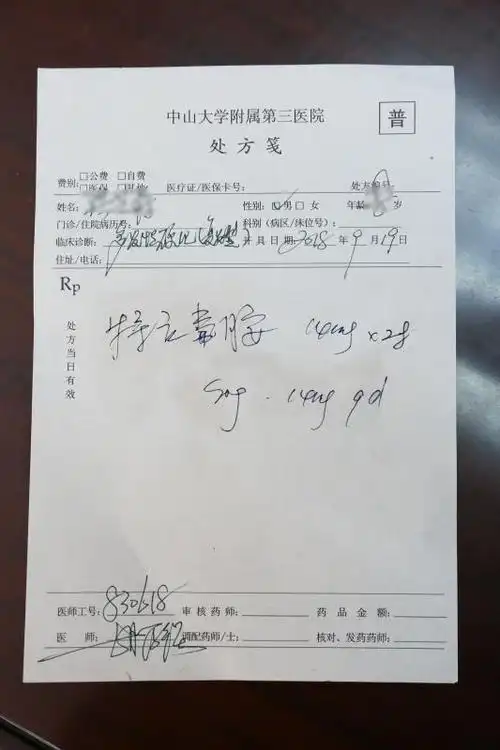 中山大学附属第三医院
普
处方笺
费别:□公费 □自费
□医保 □其他 医疗证/医保卡号: 处方编号:
姓名: 性别:☑男□女 年龄: 岁
门诊/住院病历号: 科别(病区/床位号):
临床诊断:多发性硬化(复发型) 开具日期:2018年9月19日
住址/电话:
Rp
处方当日有效
特立氟胺 14mg x28
Sig. 14mg qd
医师工号:830618 审核药师: 药品金额:
医师: 调配药师/士: 核对、发药药师: